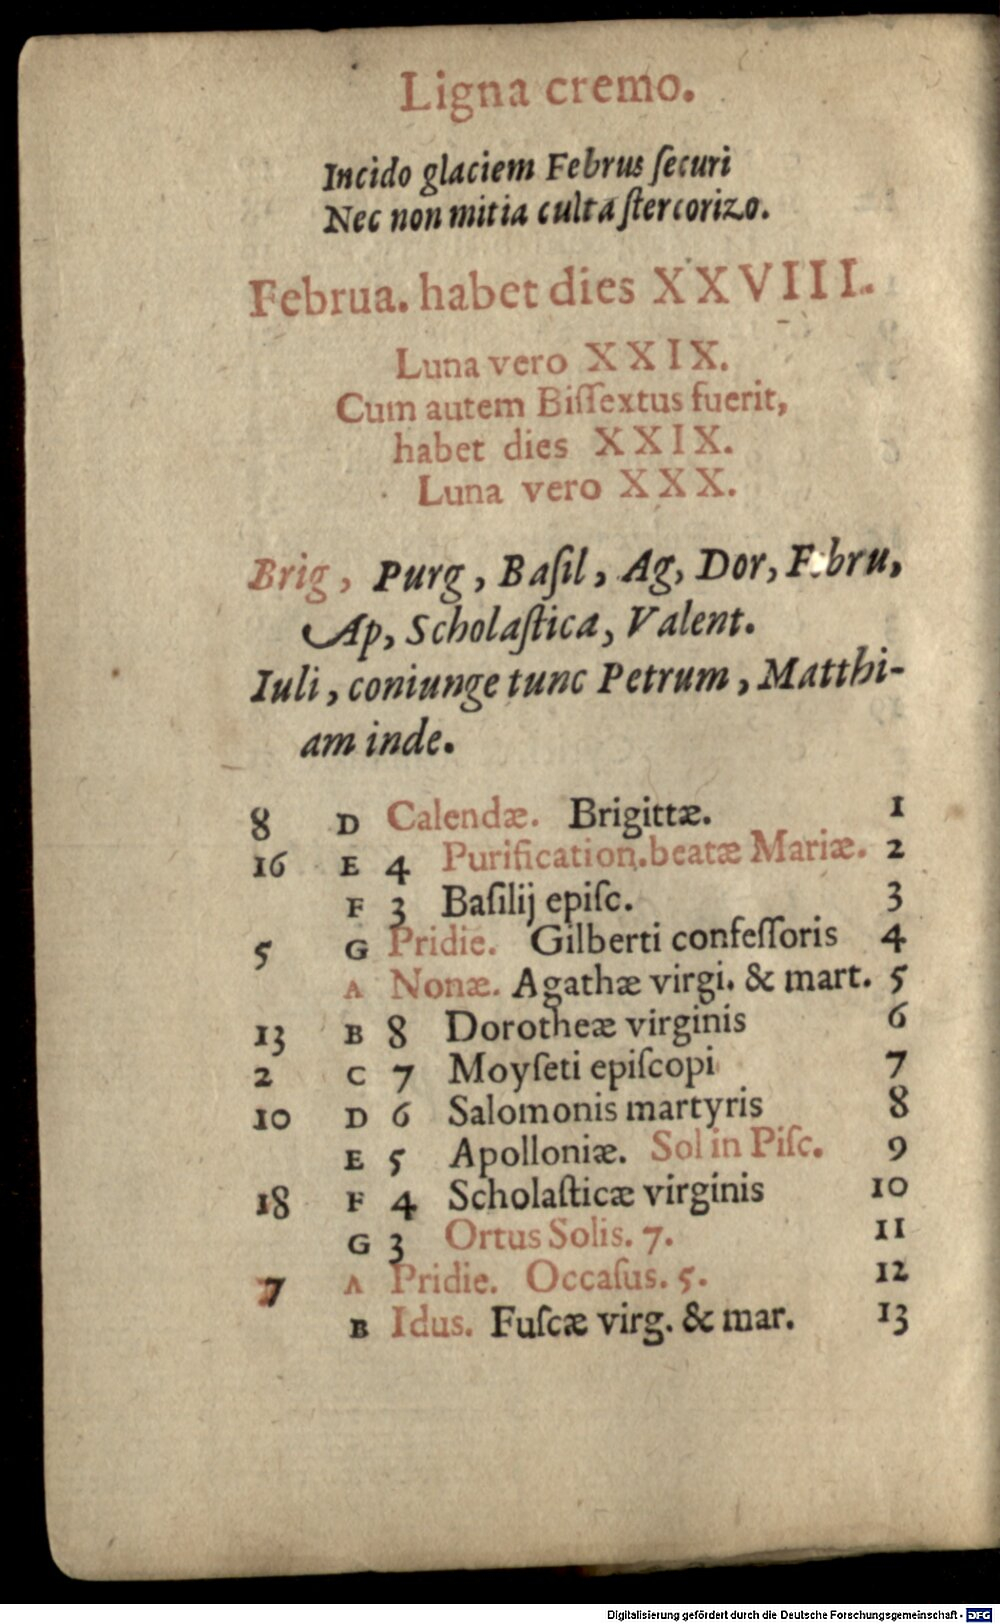 Ligna cremo.
Incido glaciem Februs ſecuri
Nec non mitia culta ſtercorizo.
Februa. habet dies XXVIII.
Luna vero XXIX.
Cum autem Biſſextus fuerit,
habet dies XXIX.
Luna vero XXX.
Brig, Purg, Baſil, Ag, Dor, Febru,
Ap, Scholaſtica, Valent.
Iuli, coniunge tunc Petrum, Matthi-
am inde.
8 D Calendæ. Brigittæ. 1
16 E 4 Purification.beatæ Mariæ. 2
F 3 Baſilij epiſc. 3
5 G Pridie. Gilberti confeſſoris 4
A Nonæ. Agathæ virgi. & mart. 5
13 B 8 Dorotheæ virginis 6
2 C 7 Moyſeti epiſcopi 7
10 D 6 Salomonis martyris 8
E 5 Apolloniæ. Sol in Piſc. 9
18 F 4 Scholaſticæ virginis 10
G 3 Ortus Solis. 7. 11
7 A Pridie. Occaſus. 5. 12
B Idus. Fuſcæ virg. & mar. 13
Digitalisierung gefördert durch die Deutsche Forschungsgemeinschaft - DFG